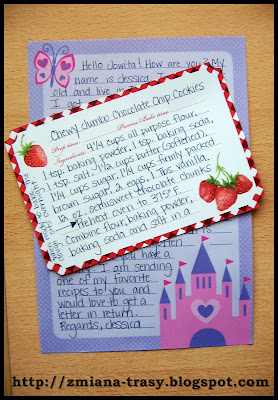 Hello Jowita! How are you? My
name is Jessica. I
old and live in
I got
Chewy Jumbo Chocolate Chip Cookies
Prep time: Process/Bake time:
Ingredients: 4 1/4 cups all purpose flour,
1 tsp. baking powder, 1 tsp. baking soda,
1 tsp. salt, 1 1/2 cups butter (softened),
1 1/4 cups sugar, 1 1/4 cups firmly packed
brown sugar, 2 eggs, 1 Tbs vanilla,
12 oz. semisweet chocolate chunks
Preheat oven to 375°F.
Combine flour, baking powder,
baking soda and salt in a
you have a
I am sending
one of my favorite
recipes to you and
would love to get a
letter in return.
Regards, Jessica
http://zmiana-trasy.blogspot.com